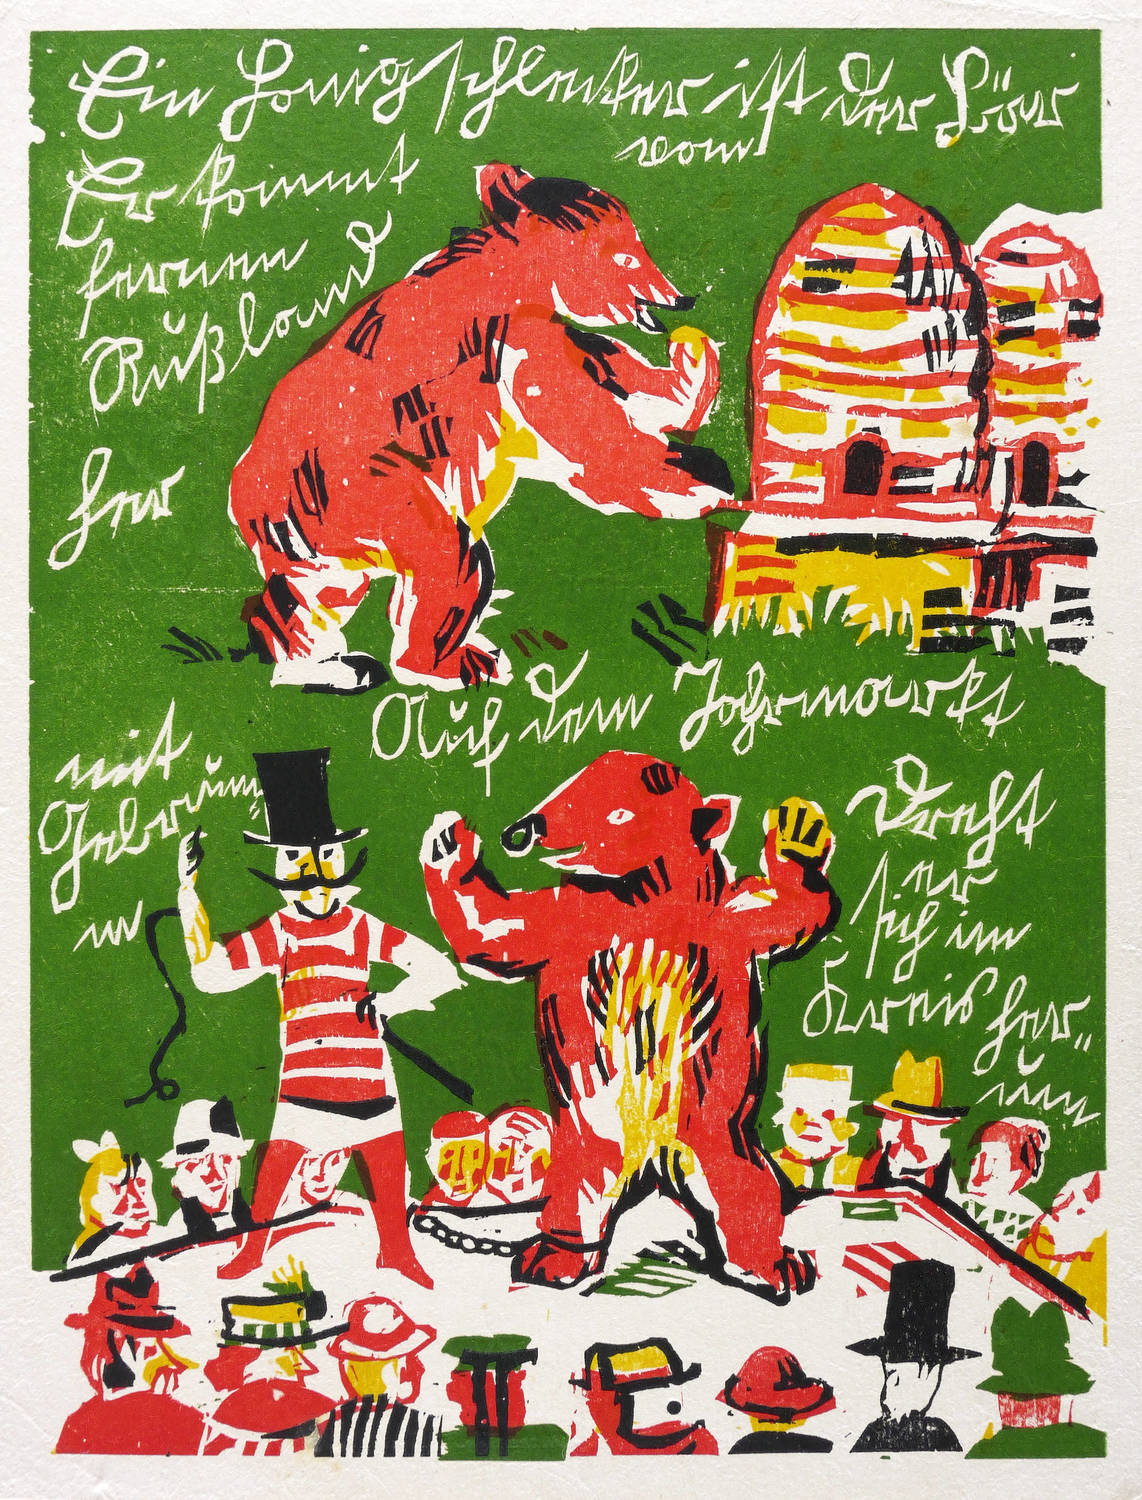 Ein Honigschlecker ist der Bär
Er kommt vom
fernen
Rußland
her
Auf dem Jahrmarkt
dreht
er
sich im
Kreis her=
um
mit
Gebrumm=
m